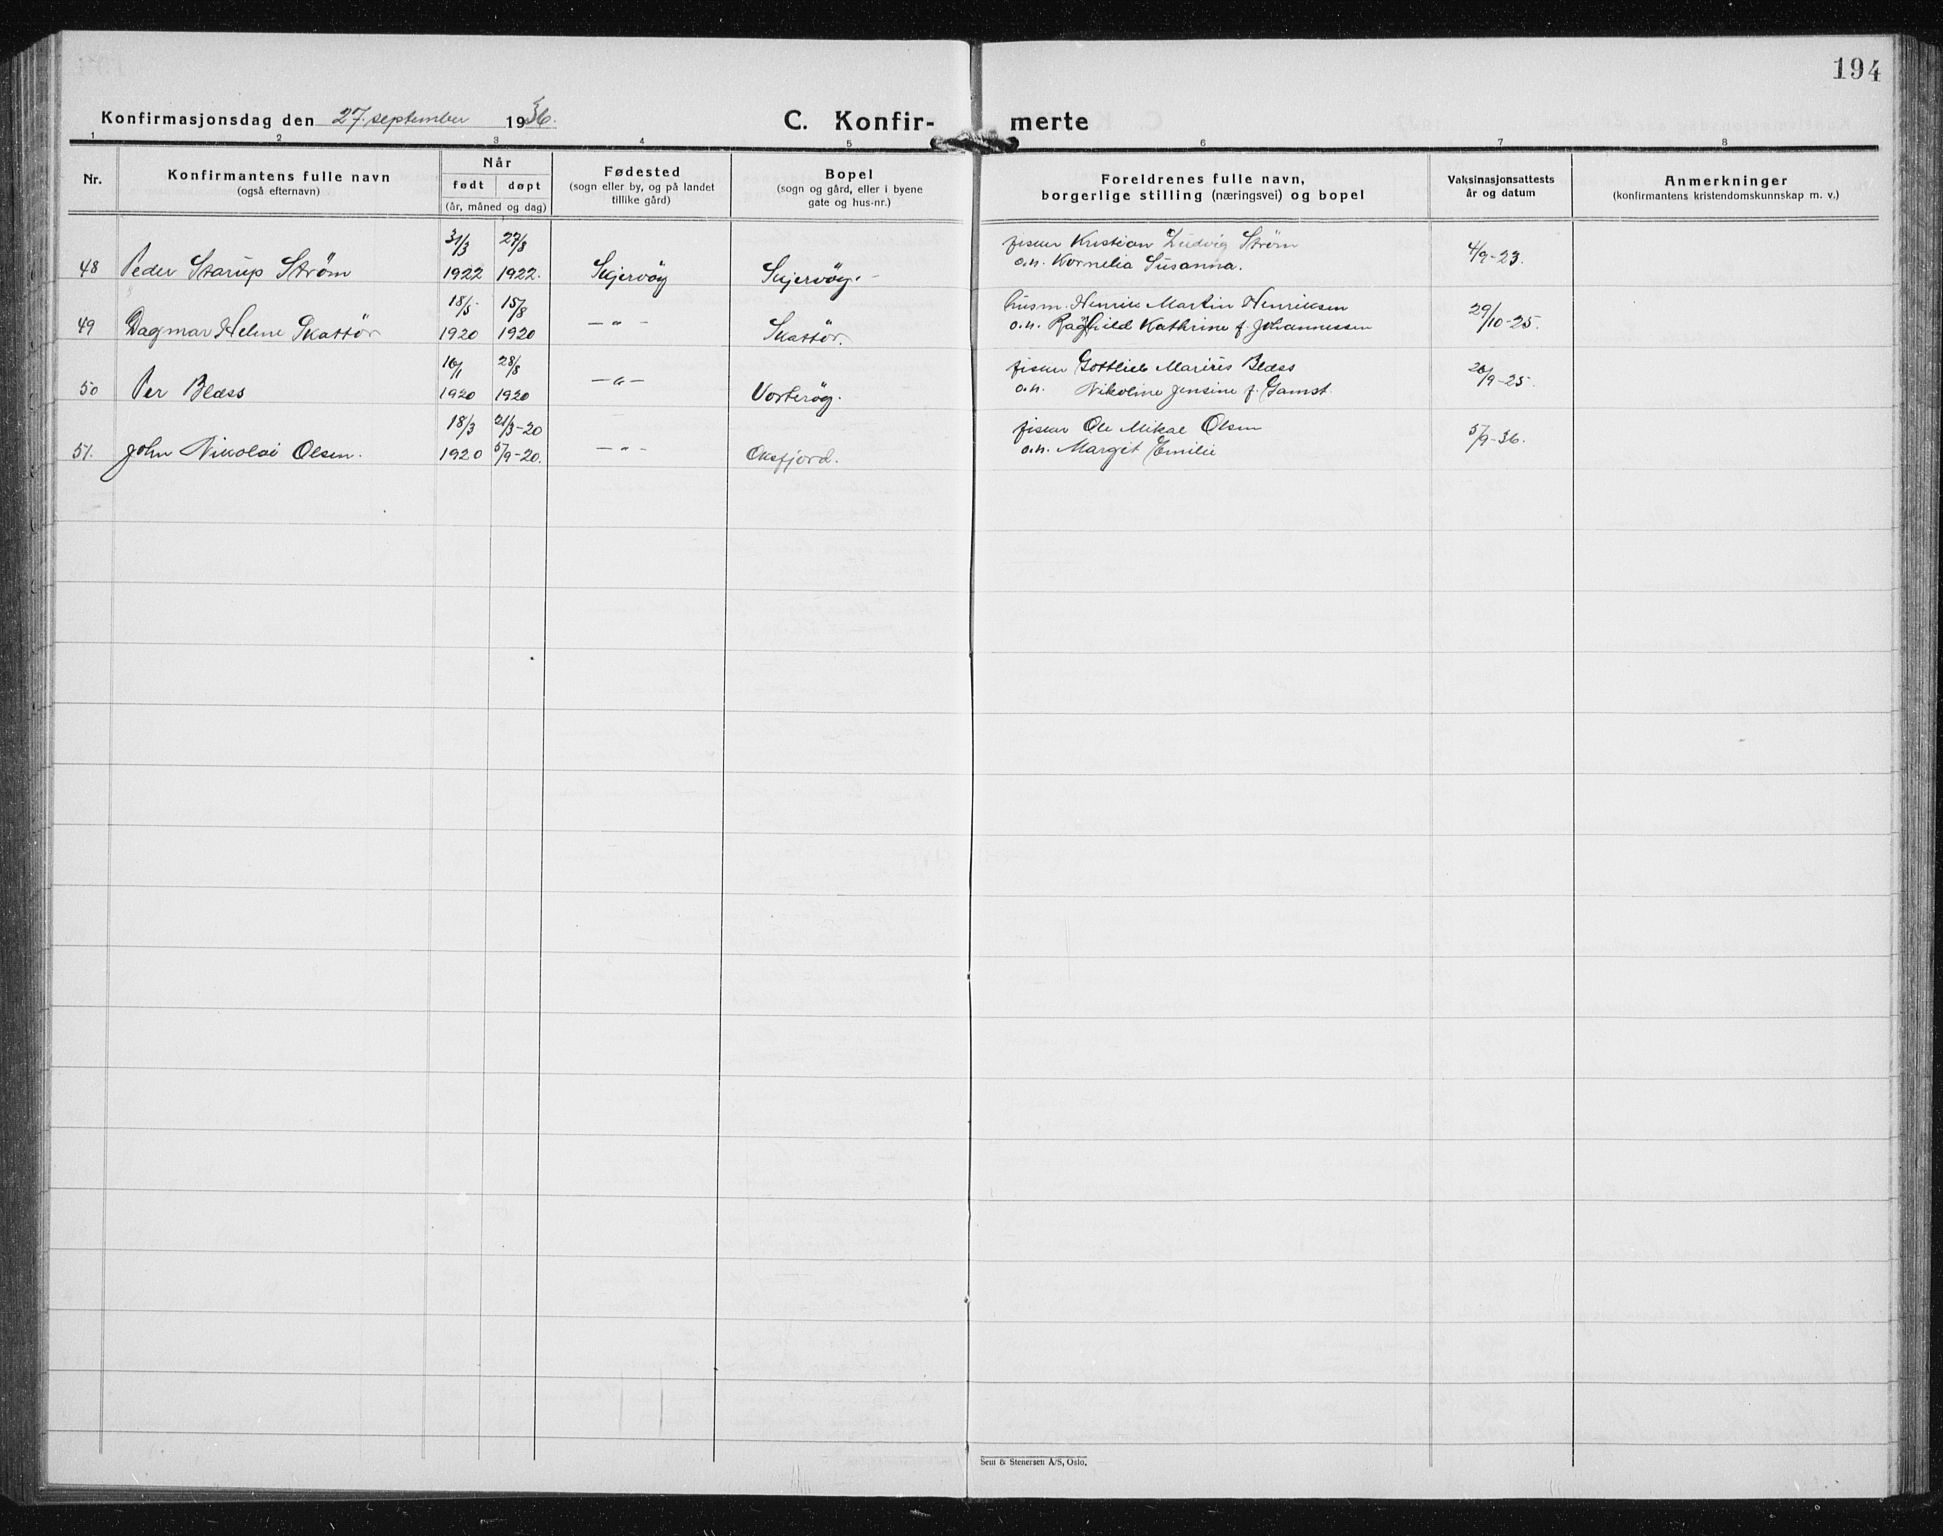 194
Konfirmasjonsdag den 27. september 1936.
C. Konfir- merte
1 2 3 4 5 6 7 8
Nr.
Konfirmantens fulle navn
(også efternavn)
Når
født døpt
(år, måned og dag)
Fødested
(sogn eller by, og på landet
tillike gård)
Bopel
(sogn og gård, eller i byene
gate og hus-nr.)
Foreldrenes fulle navn,
borgerlige stilling (næringsvei) og bopel
Vaksinasjonsattests
år og datum
Anmerkninger
(konfirmantens kristendomskunnskap m. v.)
31/3 27/8 fisker Kristian Ludvig Strøm 4/9-23.
48 Peder Starup Strøm 1922 1922. Skjervøy Skjervøy. o.h. Kornelia Susanna.
18/5 15/8 husm. Henrik Martin Henriksen 29/10-25.
49 Dagmar Helene Skattør 1920 1920 —"— Skattør. o.h. Raghild Kathrine f. Johannessen
16/1 28/8 fisker Gottlieb Marius Blæss 26/9-25.
50 Per Blæss 1920 1920 —"— Vorterøy. o.h. Nikoline Jensine f. Gamst.
18/3 21/3-20 fisker Ole Mikal Olsen 5/9-36.
51. John Nikolai Olsen. 1920 5/9-20. —"— Oksfjord. o.h. Margit Emilie
Sem & Stenersen A/S, Oslo.